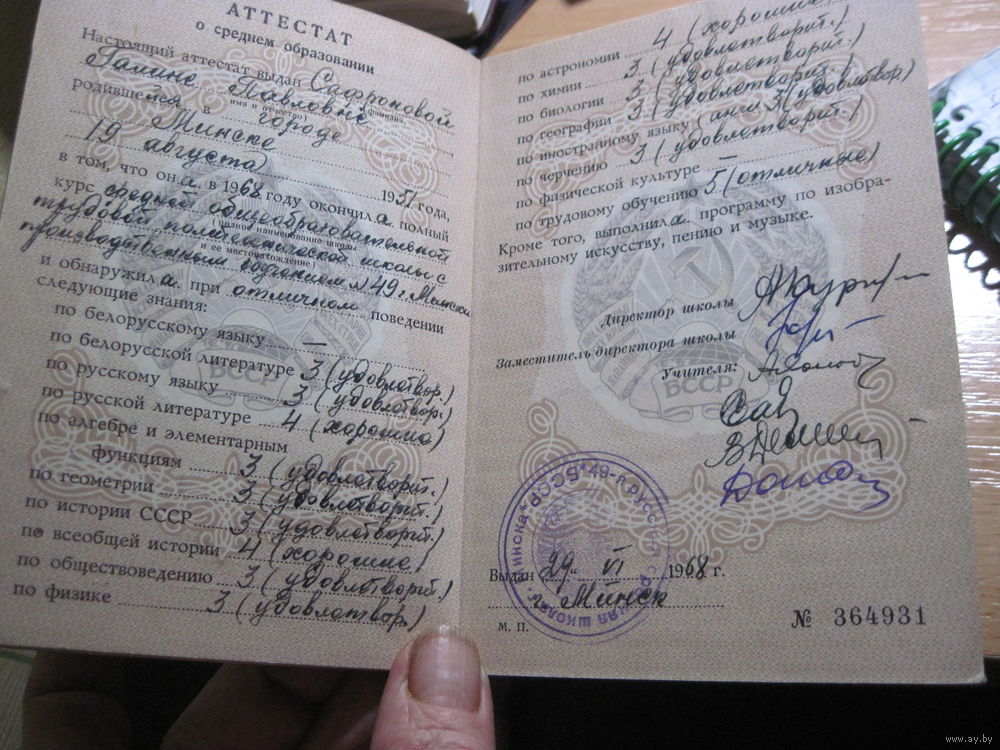 АТТЕСТАТ
о среднем образовании
Настоящий аттестат выдан Сафроновой
фамилия,
Галине Павловне
имя и отчество)
родившейся в городе
Минске,
19 августа 1951 года,
в том, что она в 1968 году окончила полный
курс средней общеобразовательной
(полное наименование школы
трудовой политехнической школы с
и ее местонахождение)
производственным обучением №49 г. Минска
и обнаружила при отличном поведении
следующие знания:
по белорусскому языку —
по белорусской литературе 3 (удовлетвор.)
по русскому языку 3 (удовлетвор.)
по русской литературе 4 (хорошо)
по алгебре и элементарным
функциям 3 (удовлетворит.)
по геометрии 3 (удовлетворит.)
по истории СССР 3 (удовлетворит.)
по всеобщей истории 4 (хорошо)
по обществоведению 3 (удовлетворит.)
по физике 3 (удовлетвор.)
БССР
по астрономии 4 (хорошо)
по химии 3 (удовлетворит.)
по биологии 3 (удовлетворит.)
по географии 3 (удовлетворит.)
по иностранному языку (англ. 3 (удовлетвор)
по черчению 3 (удовлетворит.)
по физической культуре —
по трудовому обучению 5 (отлично)
Кроме того, выполнила программу по изобра-
зительному искусству, пению и музыке.
Директор школы
Заместитель директора школы
Учителя:
БССР
Выдан 29 VI 1968 г.
г. Минск
М. П.
№ 364931
www.ay.by